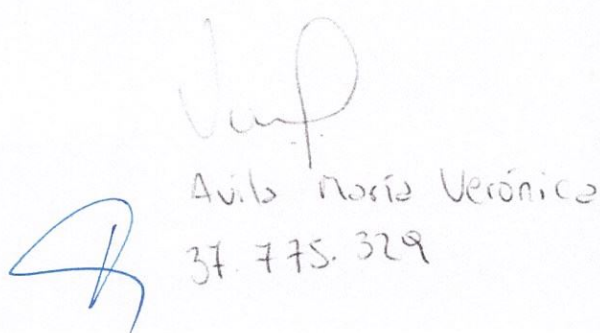 Avila María Verónica
37.775.329